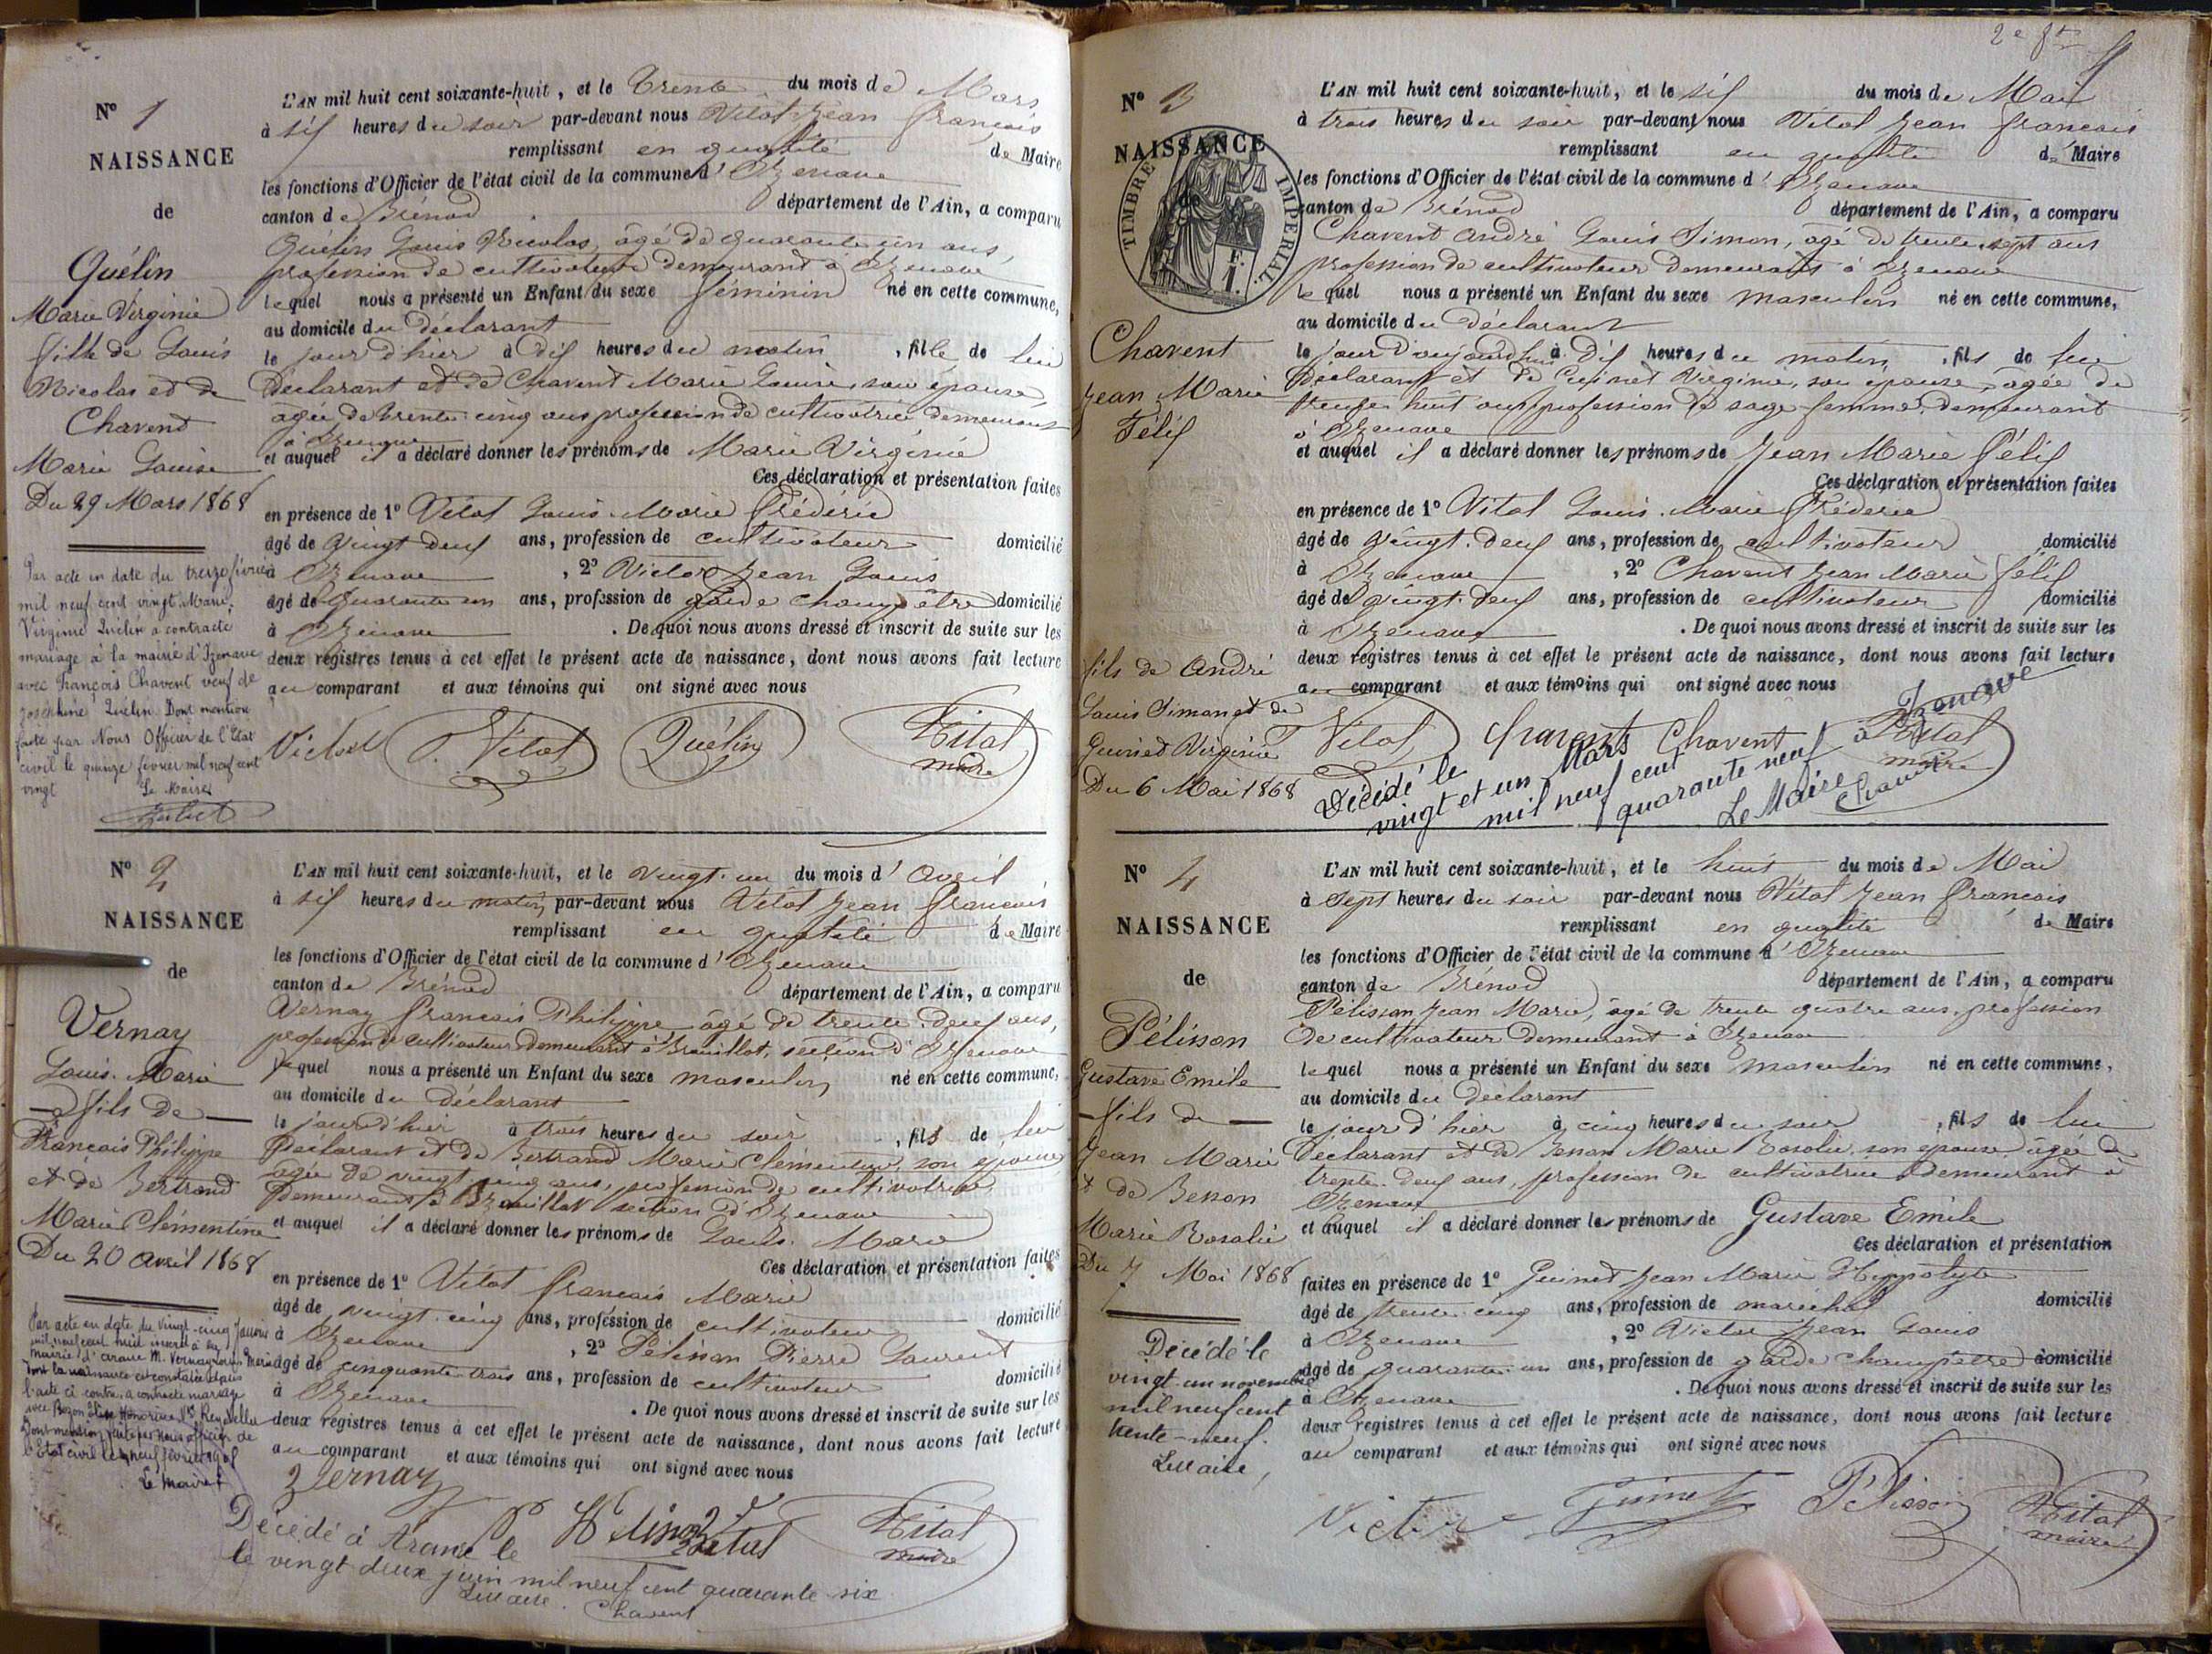 N° 1
NAISSANCE
de
Quélin
Marie Virginie
fille de Louis
Nicolas et de
Chavent
Marie Louise
Du 29 Mars 1868
Par acte en date du treize février
mil neuf cent vingt Marie
Virginie Quélin a contracté
mariage à la mairie d'Izenave
avec François Chavent veuf de
Joséphine Quélin Dont mention
faite par Nous Officier de l'Etat
civil le quinze février mil neuf cent
vingt
Le Maire
L'AN mil huit cent soixante-huit, et le trente du mois de Mars
à six heures du soir par-devant nous Vital Jean François
remplissant en qualité de Maire
les fonctions d'Officier de l'état civil de la commune d'Izenave
canton de Brénod département de l'Ain, a comparu
Quélin Louis Nicolas, âgé de quarante un ans,
profession de cultivateur demeurant à Izenave
lequel nous a présenté un Enfant du sexe féminin né en cette commune,
au domicile du déclarant
le jour d'hier à dix heures du matin, fille de lui
déclarant et de Chavent Marie Louise, son épouse,
âgée de trente cinq ans profession de cultivatrice, demeurant
à Izenave
et auquel il a déclaré donner les prénoms de Marie Virginie
Ces déclaration et présentation faites
en présence de 1° Vital Louis Marie Frédéric
âgé de vingt deux ans, profession de cultivateur domicilié
à Izenave, 2° Victor Jean Louis
âgé de quarante un ans, profession de garde champêtre domicilié
à Izenave. De quoi nous avons dressé et inscrit de suite sur les
deux registres tenus à cet effet le présent acte de naissance, dont nous avons fait lecture
au comparant et aux témoins qui ont signé avec nous
Victor Vital Quélin Vital
maire
N° 2
NAISSANCE
de
Vernay
Louis Marie
fils de
François Philippe
et de Bertrand
Marie Clémentine
Du 20 avril 1868
Par acte en date du vingt-cinq janvier
mil neuf cent huit inscrit à la
mairie d'Aranc M. Vernay Louis Marie
dont la naissance est constatée d'après
l'acte ci contre, a contracté mariage
avec Bozon
Dont mention faite par Nous officier de
l'Etat civil le neuf février 1908
Le Maire
L'AN mil huit cent soixante-huit, et le vingt-un du mois d'avril
à six heures du matin, par-devant nous Vital Jean François
remplissant en qualité de Maire
les fonctions d'Officier de l'état civil de la commune d'Izenave
canton de Brénod département de l'Ain, a comparu
Vernay François Philippe âgé de trente-deux ans,
profession de cultivateur demeurant à section d'Izenave
lequel nous a présenté un Enfant du sexe masculin né en cette commune,
au domicile du déclarant
le jour d'hier à trois heures du soir, fils de lui
déclarant et de Bertrand Marie Clémentine, son épouse
âgée de vingt cinq ans, profession de cultivatrice,
demeurant à section d'Izenave
et auquel il a déclaré donner les prénoms de Louis Marie
Ces déclaration et présentation faites
en présence de 1° Vital François Marie
âgé de vingt-cinq ans, profession de cultivateur domicilié
à Izenave, 2° Pélisson Pierre Laurent
âgé de cinquante-trois ans, profession de cultivateur domicilié
à Izenave. De quoi nous avons dressé et inscrit de suite sur les
deux registres tenus à cet effet le présent acte de naissance, dont nous avons fait lecture
au comparant et aux témoins qui ont signé avec nous
Vernay
Vital Vital
maire
Décédé à Aranc le
le vingt deux juin mil neuf cent quarante six
Le Maire. Chavent
N° 3
NAISSANCE
de
TIMBRE IMPERIAL
Chavent
Jean Marie
Félix
fils de André
Louis Simon et de
Guinet Virginie
Du 6 Mai 1868
L'AN mil huit cent soixante-huit, et le six du mois de Mai
à trois heures du soir par-devant nous Vital Jean François
remplissant en qualité de Maire
les fonctions d'Officier de l'état civil de la commune d'Izenave
canton de Brénod département de l'Ain, a comparu
Chavent André Louis Simon, âgé de trente-sept ans
profession de cultivateur demeurant à Izenave
lequel nous a présenté un Enfant du sexe masculin né en cette commune,
au domicile du déclarant
le jour d'aujourd'hui à dix heures du matin, fils de lui
déclarant et de Guinet Virginie, son épouse, âgée de
trente huit ans profession de sage femme, demeurant
à Izenave
et auquel il a déclaré donner les prénoms de Jean Marie Félix
Ces déclaration et présentation faites
en présence de 1° Vital Louis Marie Fréderic
âgé de vingt-deux ans, profession de cultivateur domicilié
à Izenave, 2° Chavent Jean Marie Félix
âgé de vingt-deux ans, profession de cultivateur domicilié
à Izenave. De quoi nous avons dressé et inscrit de suite sur les
deux registres tenus à cet effet le présent acte de naissance, dont nous avons fait lecture
au comparant et aux témoins qui ont signé avec nous
Vital Chavent Chavent Vital
maire
Décédé le à Izenave
vingt et un Mars
mil neuf cent
quarante neuf
Le Maire
Chavent
N° 4
NAISSANCE
de
Pélisson
Gustave Emile
fils de
Jean Marie
et de Benon
Marie Rosalie
Du 7 Mai 1868
Décédé le
vingt-un novembre
mil neuf cent
trente-neuf.
Le Maire,
L'AN mil huit cent soixante-huit, et le huit du mois de Mai
à sept heures du soir par-devant nous Vital Jean François
remplissant en qualité de Maire
les fonctions d'Officier de l'état civil de la commune d'Izenave
canton de Brénod département de l'Ain, a comparu
Pélisson Jean Marie, âgé de trente quatre ans profession
de cultivateur demeurant à Izenave
lequel nous a présenté un Enfant du sexe masculin né en cette commune,
au domicile du déclarant
le jour d'hier à cinq heures du soir, fils de lui
déclarant et de Benon Marie Rosalie son épouse, âgée de
trente-deux ans, profession de cultivatrice demeurant à
Izenave
et auquel il a déclaré donner les prénoms de Gustave Emile
Ces déclaration et présentation
faites en présence de 1° Guinet Jean Marie Hippolyte
âgé de trente-cinq ans, profession de maréchal domicilié
à Izenave, 2° Victor Jean Louis
âgé de quarante-un ans, profession de garde champêtre domicilié
à Izenave. De quoi nous avons dressé et inscrit de suite sur les
deux registres tenus à cet effet le présent acte de naissance, dont nous avons fait lecture
au comparant et aux témoins qui ont signé avec nous
Victor Guinet Pélisson Vital
maire